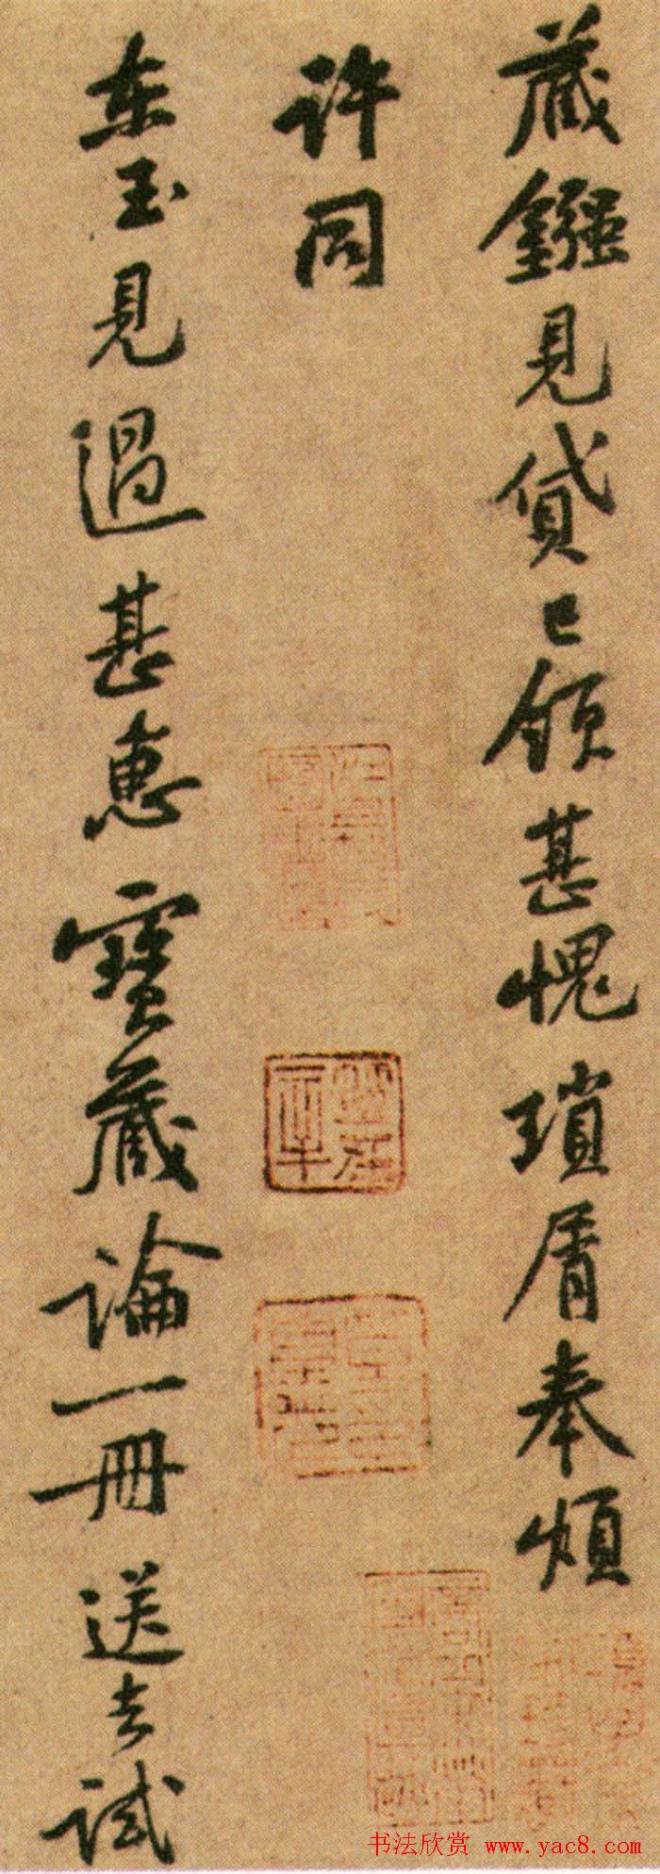 藏鏹見貸已領甚愧瑣屑奉煩
許同
东玉見過甚惠寶藏論一冊送去試
书法欣赏 www.yac8.com